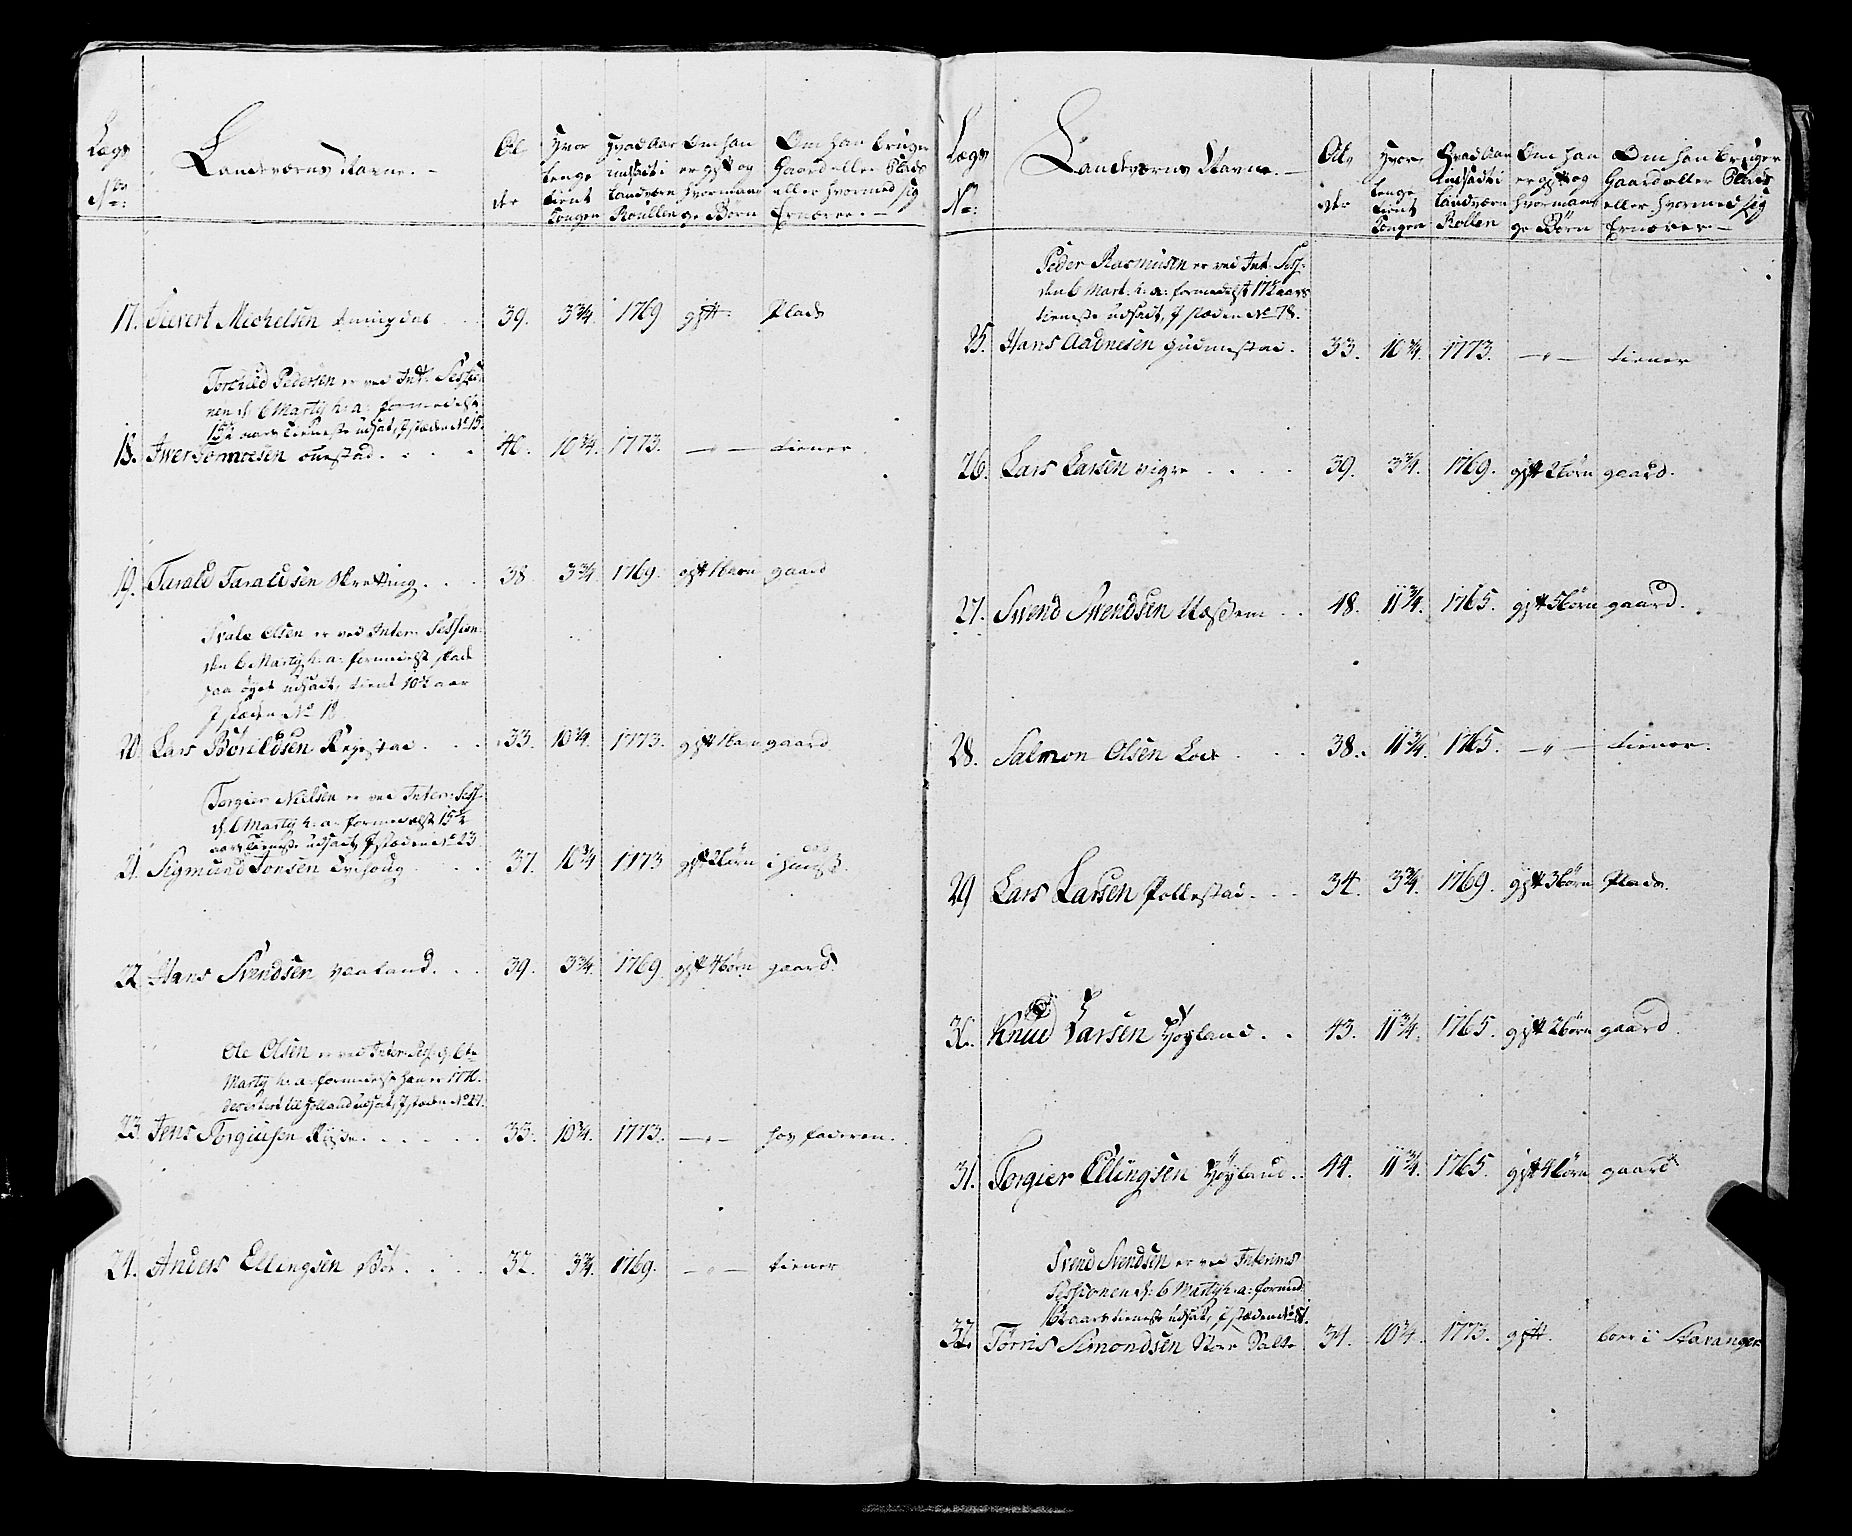 Lægs No:
Landværns Navne. -
Alder
Hvor lenge tient Kongen
Hvad Aar indsadt i Landværn Roullen
Om han er gift og Hvormange Børn
Om han bruger Gaard eller Plads eller hvormed sig Ernærer. -
17. Sievert Michelsen 39. 3¾. 1769 gift. Plads
Torchild Pedersen er ved Int: Sessio
nen d: 6 Martij h: a: formedelst
15½ aars Tieneste udsat, I stæden No 15.
18. Iwer Tormoesen 40. 10¾. 1773. — " — tiener.
19. Tarald Taraldsen Skretting. 38. 3¾. 1769. gift 1barn gaard
Svale Olsen er ved Inter: Session:
den 6 Martij h: a: formedelst skade
paa øyet udsadt, tient 10¾ aar
I stæden No 18
20. Lars Børildsen Regestad 33. 10¾. 1773. gift gaard
Torgier Nielsen er ved Inter: Sess:
d. 6 Martij h: a: formedelst 15½
aars Tieneste udsadt, I stæden No 23
21. Sigmund Tonsen 37. 10¾ 1773 gift 2børn
22. Hans Svendsen Vaaland. 39. 3¾. 1769. gift 4børn gaard.
Ole Olsen er ved Inter: Sess: d: 6te
Martij h: a: formedelst han er 1771.
deserteret til Holland udsat, I stæden No 27.
23. Jens Torgiusen 33. 10¾. 1773. — " — hos faderen.
24. Anders Ellingsen Bøe 32. 3¾. 1769. — " — tiener
Lægs No:
Landværns Navne. -
Alder
Hvor lenge tient Kongen
Hvad Aar indsadt i Landværn Rollen
Om han er gift og hvormange Børn
Om han bruger Gaard eller Plads eller hvormed sig Ernærer. -
Peder Rasmusen er ved Int: Sess:
den 6 Mart: h: a: formedelst 17½ aars
tieneste udsadt, I stæden No 78.
25. Hans Aadnesen Gudmestad. 33. 10¾. 1773. — " — tiener
26. Lars Larsen Vigre 39. 3¾. 1769. gift 2børn gaard.
27. Svend Svendsen Næsem 48. 11¾. 1765. gift 5børn gaard.
28. Salmon Olsen Lode 38. 11¾. 1765. — " — tiener.
29 Lars Larsen Pollestad. 34. 3¾. 1769. gift 3børn Plads.
30. Knud Larsen Høyland. 43. 11¾. 1765. gift 2børn gaard.
31. Torgier Ellingsen Høyland. 44. 11¾. 1765. gift 4børn gaard
Svend Svendsen er ved Interims
Sessionen d: 6 Martij h: a: formed.
aars tieneste udsat, I stæden No 81.
32. Tørris Simondsen 34. 10¾. 1773. gift. boer i Stavanger